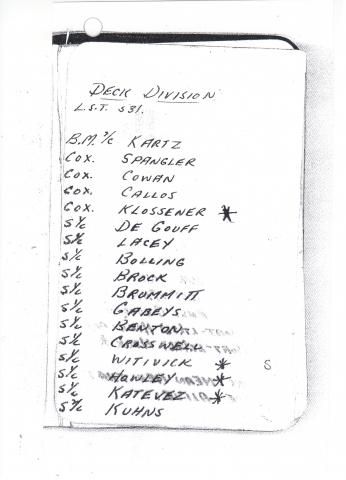 DECK DIVISION
L.S.T. 531.
B.M. 2/c KARTZ
COX. SPANGLER
COX. COWAN
COX. CALLOS
COX. KLOSSENER *
S 1/c DE GOUFF
S 1/c LACEY
S 1/c BOLLING
S 1/c BROCK
S 1/c BRUMMITT
S 1/c GABEYS
S 1/c BENTON
S 1/c CROSSWELL
S 1/c WITIVICK * S
S 1/c HOWLEY *
S 1/c KATEVEZ *
S 2/c KUHNS